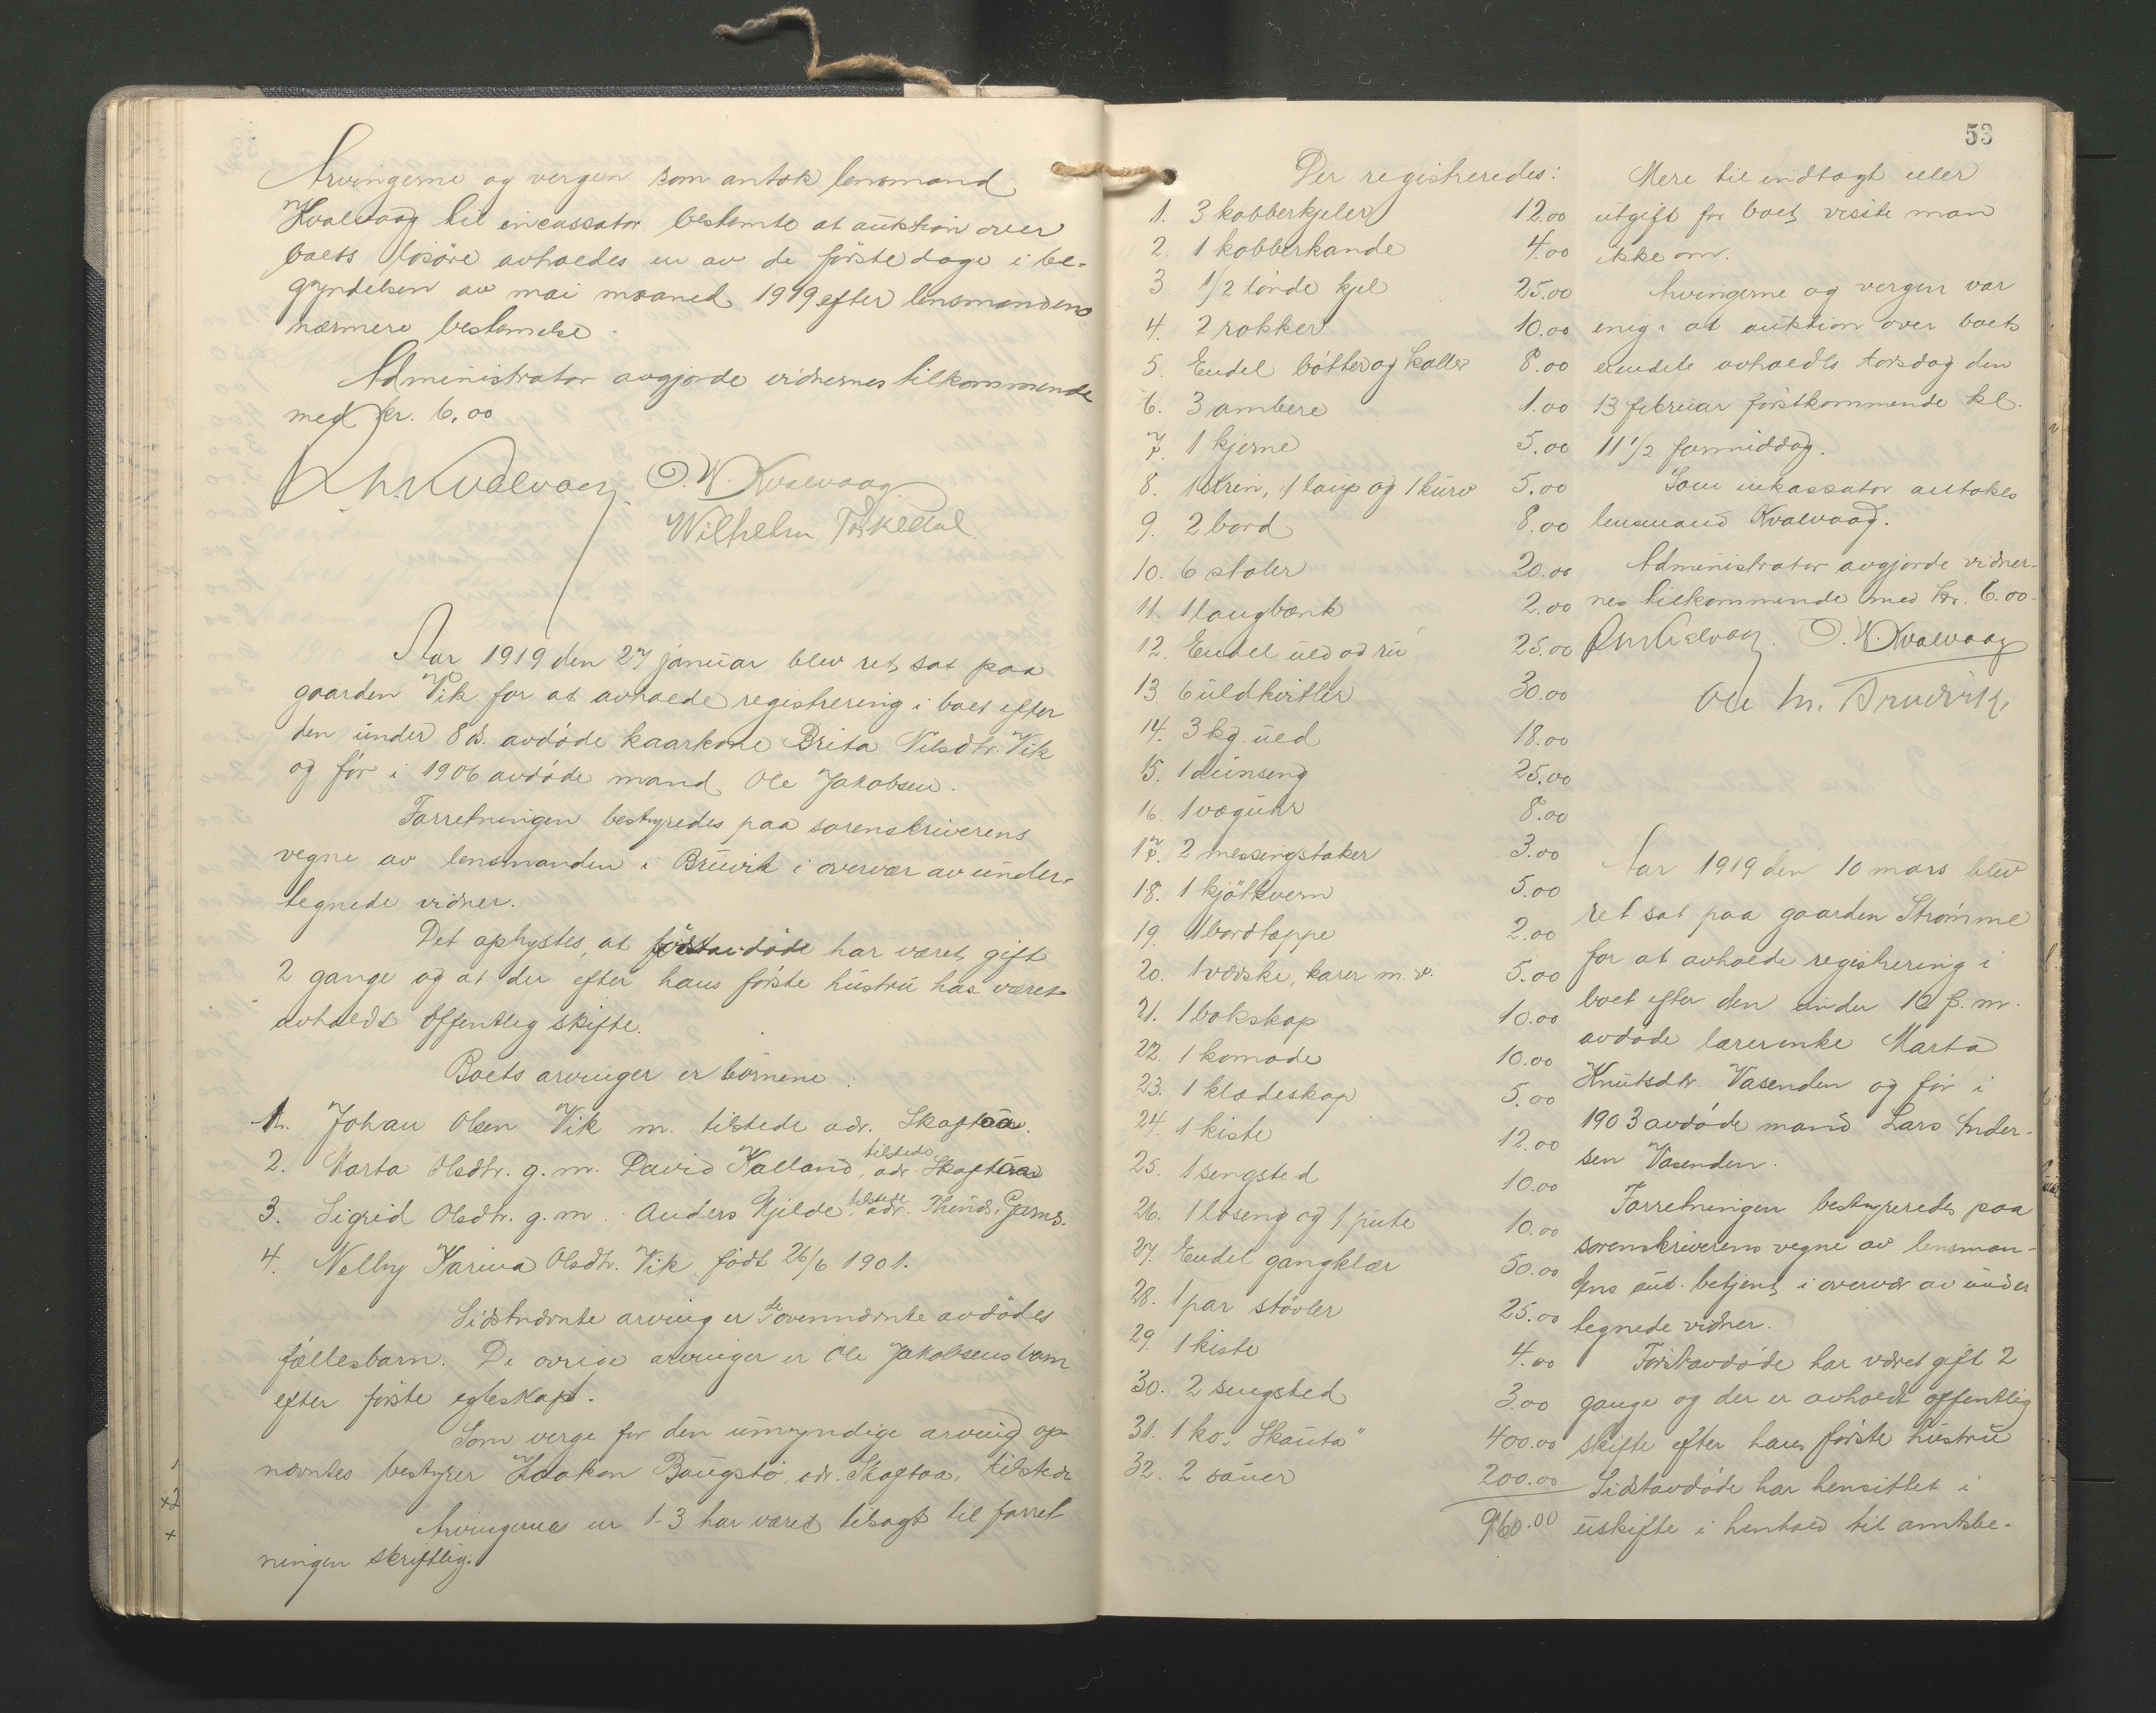 Arvingerne og vergen som antok lensmand
Kvalvaag til incassator bestemte at auktion over
boets løsøre avholdes en av de første dage i be-
gyndelsen av mai maaned 1919 efter lensmandens
nærmere bestemelse.
Administrator avgjorde vidnernes tilkommende
med kr. 6,00
Kvalvaag. O. W. Kvalvaag
Wilhelm
Aar 1919 den 27 januar blev ret sat paa
gaarden Vik for at avholde registrering i boet efter
den under 8 ds. avdøde kaarkone Brita Nilsdtr. Vik
og før i 1906 avdøde mand Ole Jakobsen.
Forretningen bestyredes paa sorenskriverens
vegne av lensmanden i Bruvik i overvær av under-
tegnede vidner.
Det oplystes, at førstavdøde har været gift
2 gange og at der efter hans første hustru har været
avholdt offentlig skifte.
Boets arvinger er børnene:
1. Johan Olsen Vik m. tilstede adr. Skaftaa.
2. Marta Olsdtr. g. m. David Kalland, tilstede adr. Skaftaa
3. Sigrid Olsdtr. g. m. Anders Gjilde, tilstede adr. Thunds. Gams.
4. Nelly Karina Olsdtr. Vik født 26/6 1901.
Sidstnævnte arving er de ovennævnte avdødes
fællesbarn. De øvrige arvinger er Ole Jakobsens barn
efter første egteskap.
Som verge for den umyndige arving op-
nævntes bestyrer Haakon Baugstø, adr. Skaftaa, tilstede
Arvingerne nr 1-3 har været tilsagt til forret
ningen skriftlig.
53
Der registreredes:
1. 3 kobberkjeler 12.00
2. 1 kobberkande 4.00
3 1/2 tønde kjel 25.00
4. 2 rokker 10.00
5. Endel bøtter og koller 8.00
6. 3 ambere 1.00
7. 1 kjerne 5.00
8. 1 skrin, 1 laup og 1 kurv 5.00
9. 2 bord 8.00
10. 6 stoler 20.00
11. 1 langbænk 2.00
12. Endel uld og ru 25.00
13 6 uldkitler 30.00
14. 3 kg. uld 18.00
15. 1 dunseng 25.00
16. 1 væguhr 8.00
17. 2 messingstaker 3.00
18. 1 kjøtkvern 5.00
19. 1 bordtæppe 2.00
20. 1 væske, karer m. v. 5.00
21. 1 bokskap 10.00
22. 1 komode 10.00
23. 1 klædeskap 5.00
24. 1 kiste 12.00
25. 1 sengsted 10.00
26. 1 løseng og 1 pute 10.00
27. Endel gangklær 50.00
28. 1 par støvler 25.00
29. 1 kiste 4.00
30. 2 sengsted 3.00
31. 1 ko "Skauta" 400.00
32. 2 sauer 200.00
960.00
Mere til indtægt eller
utgift for boet visste man
ikke om.
Arvingerne og vergen var
enig i at auktion over boets
eiendele avholdes torsdag den
13 februar førstkommende kl.
11 1/2 formiddag.
Som inkassator antokes
lensmand Kvalvaag.
Administrator avgjorde vidner-
nes tilkommende med kr. 6.00
Kvalvaag. O. W. Kvalvaag
Ole M.
Aar 1919 den 10 mars blev
ret sat paa gaarden Strømme
for at avholde registrering i
boet efter den under 10 f. m.
avdøde lærerenke Marta
Knutsdtr. Vasenden og før i
1903 avdøde mand Lars Ander-
sen Vasenden.
Forretningen bestyreredes paa
sorenskriverens vegne av lensman-
dens aut. betjent i overvær av under
tegnede vidner.
Førstavdøde har været gift 2
gange og der er avholdt offentlig
skifte efter hans første hustru
Sidstavdøde har hensittet i
uskifte i henhold til amtsbe-